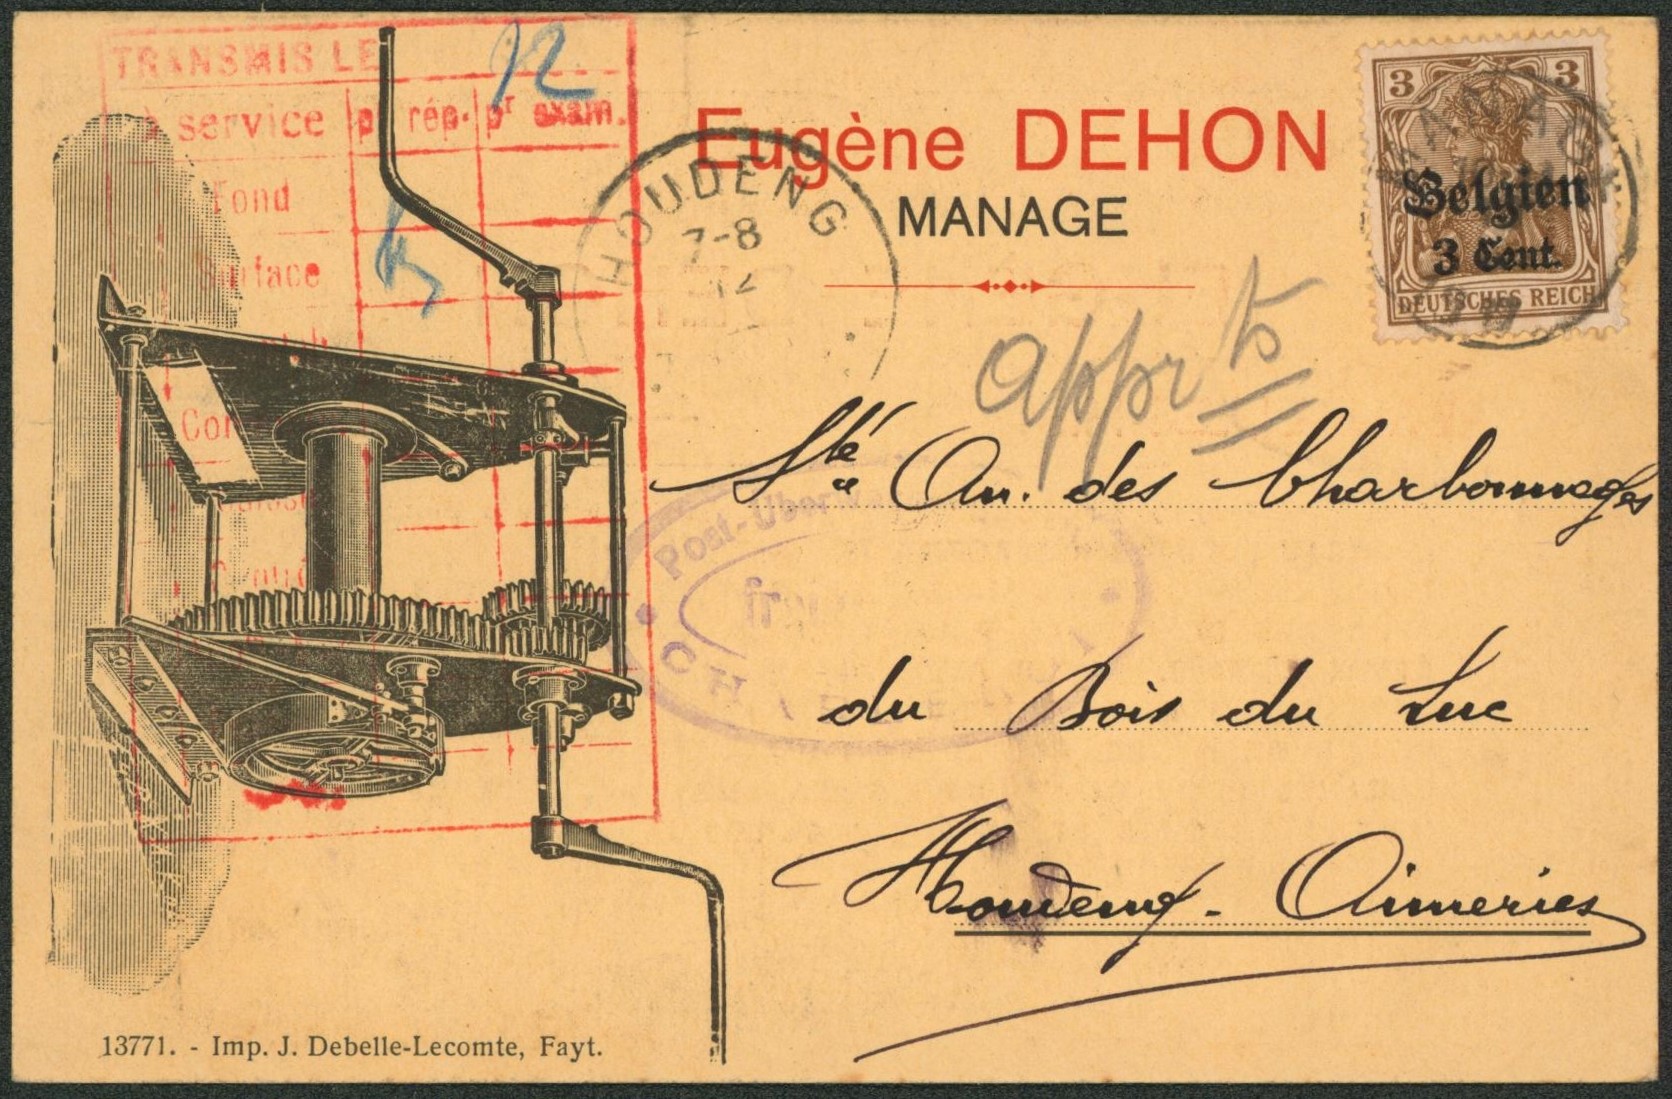 TRANSMIS LE
12
service
pr rép.
pr exam.
Fond
Surface
Eugène DEHON
MANAGE
HOUDENG
7-8
12
3 3
Belgien
3 Cent.
DEUTSCHES REICH
appr to
Sté An. des Charbonnages
Post-Über
CHARLEROI
du Bois du Luc
Houdeng-Aimeries
13771. - Imp. J. Debelle-Lecomte, Fayt.